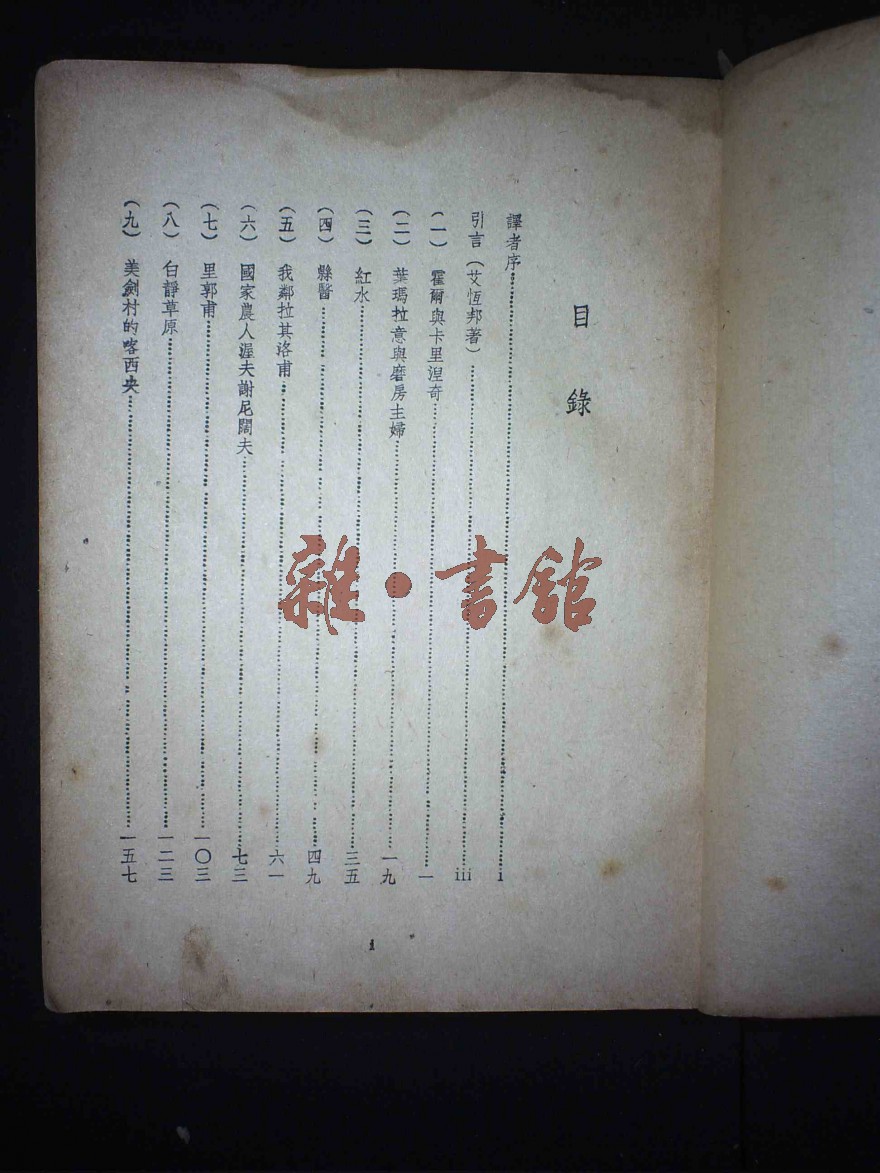 目錄
譯者序……i
引言（艾恆邦著）……iii
（一）霍爾與卡里涅奇……一
（二）葉瑪拉意與磨房主婦……一九
（三）紅水……三五
（四）縣醫……四九
（五）我鄰拉其洛甫……六一
（六）國家農人渥夫謝尼闊夫……七三
（七）里郭甫……一〇三
（八）白靜草原……一二三
（九）美劍村的喀西央……一五七
i
雜·書館